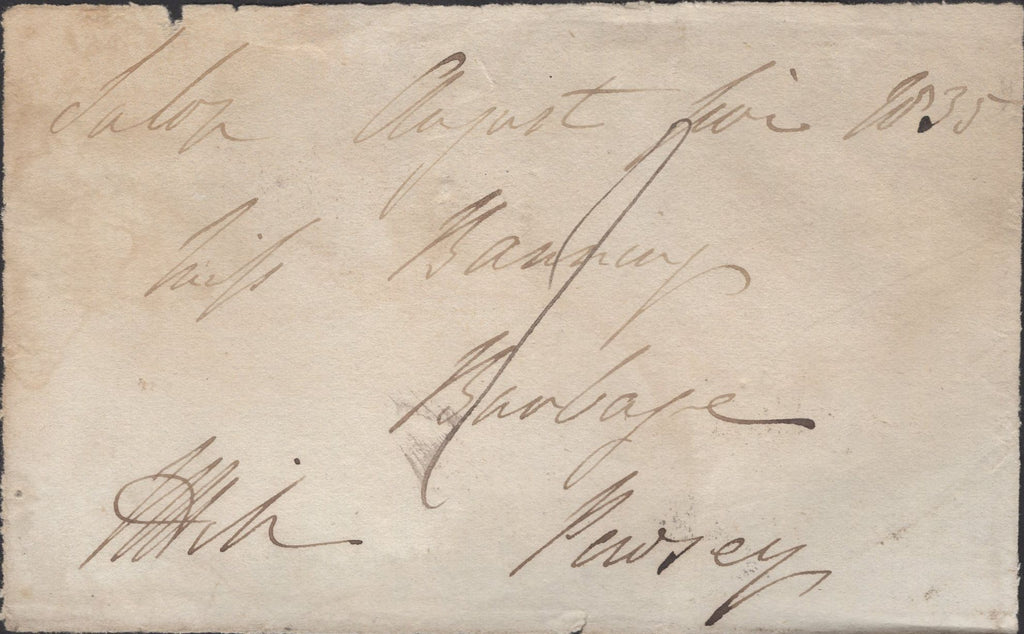 Salop August five 1835
Miss Banning
Burbage
Pewsey